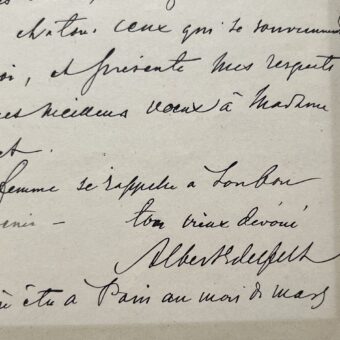 à tous ceux qui se souviennent
si, et présente mes respects
meilleurs voeux à Madame
et.
femme se rappelle à ton bon
venir – ton vieux dévoué
Albert Edelfelt
été à Paris au mois de mars